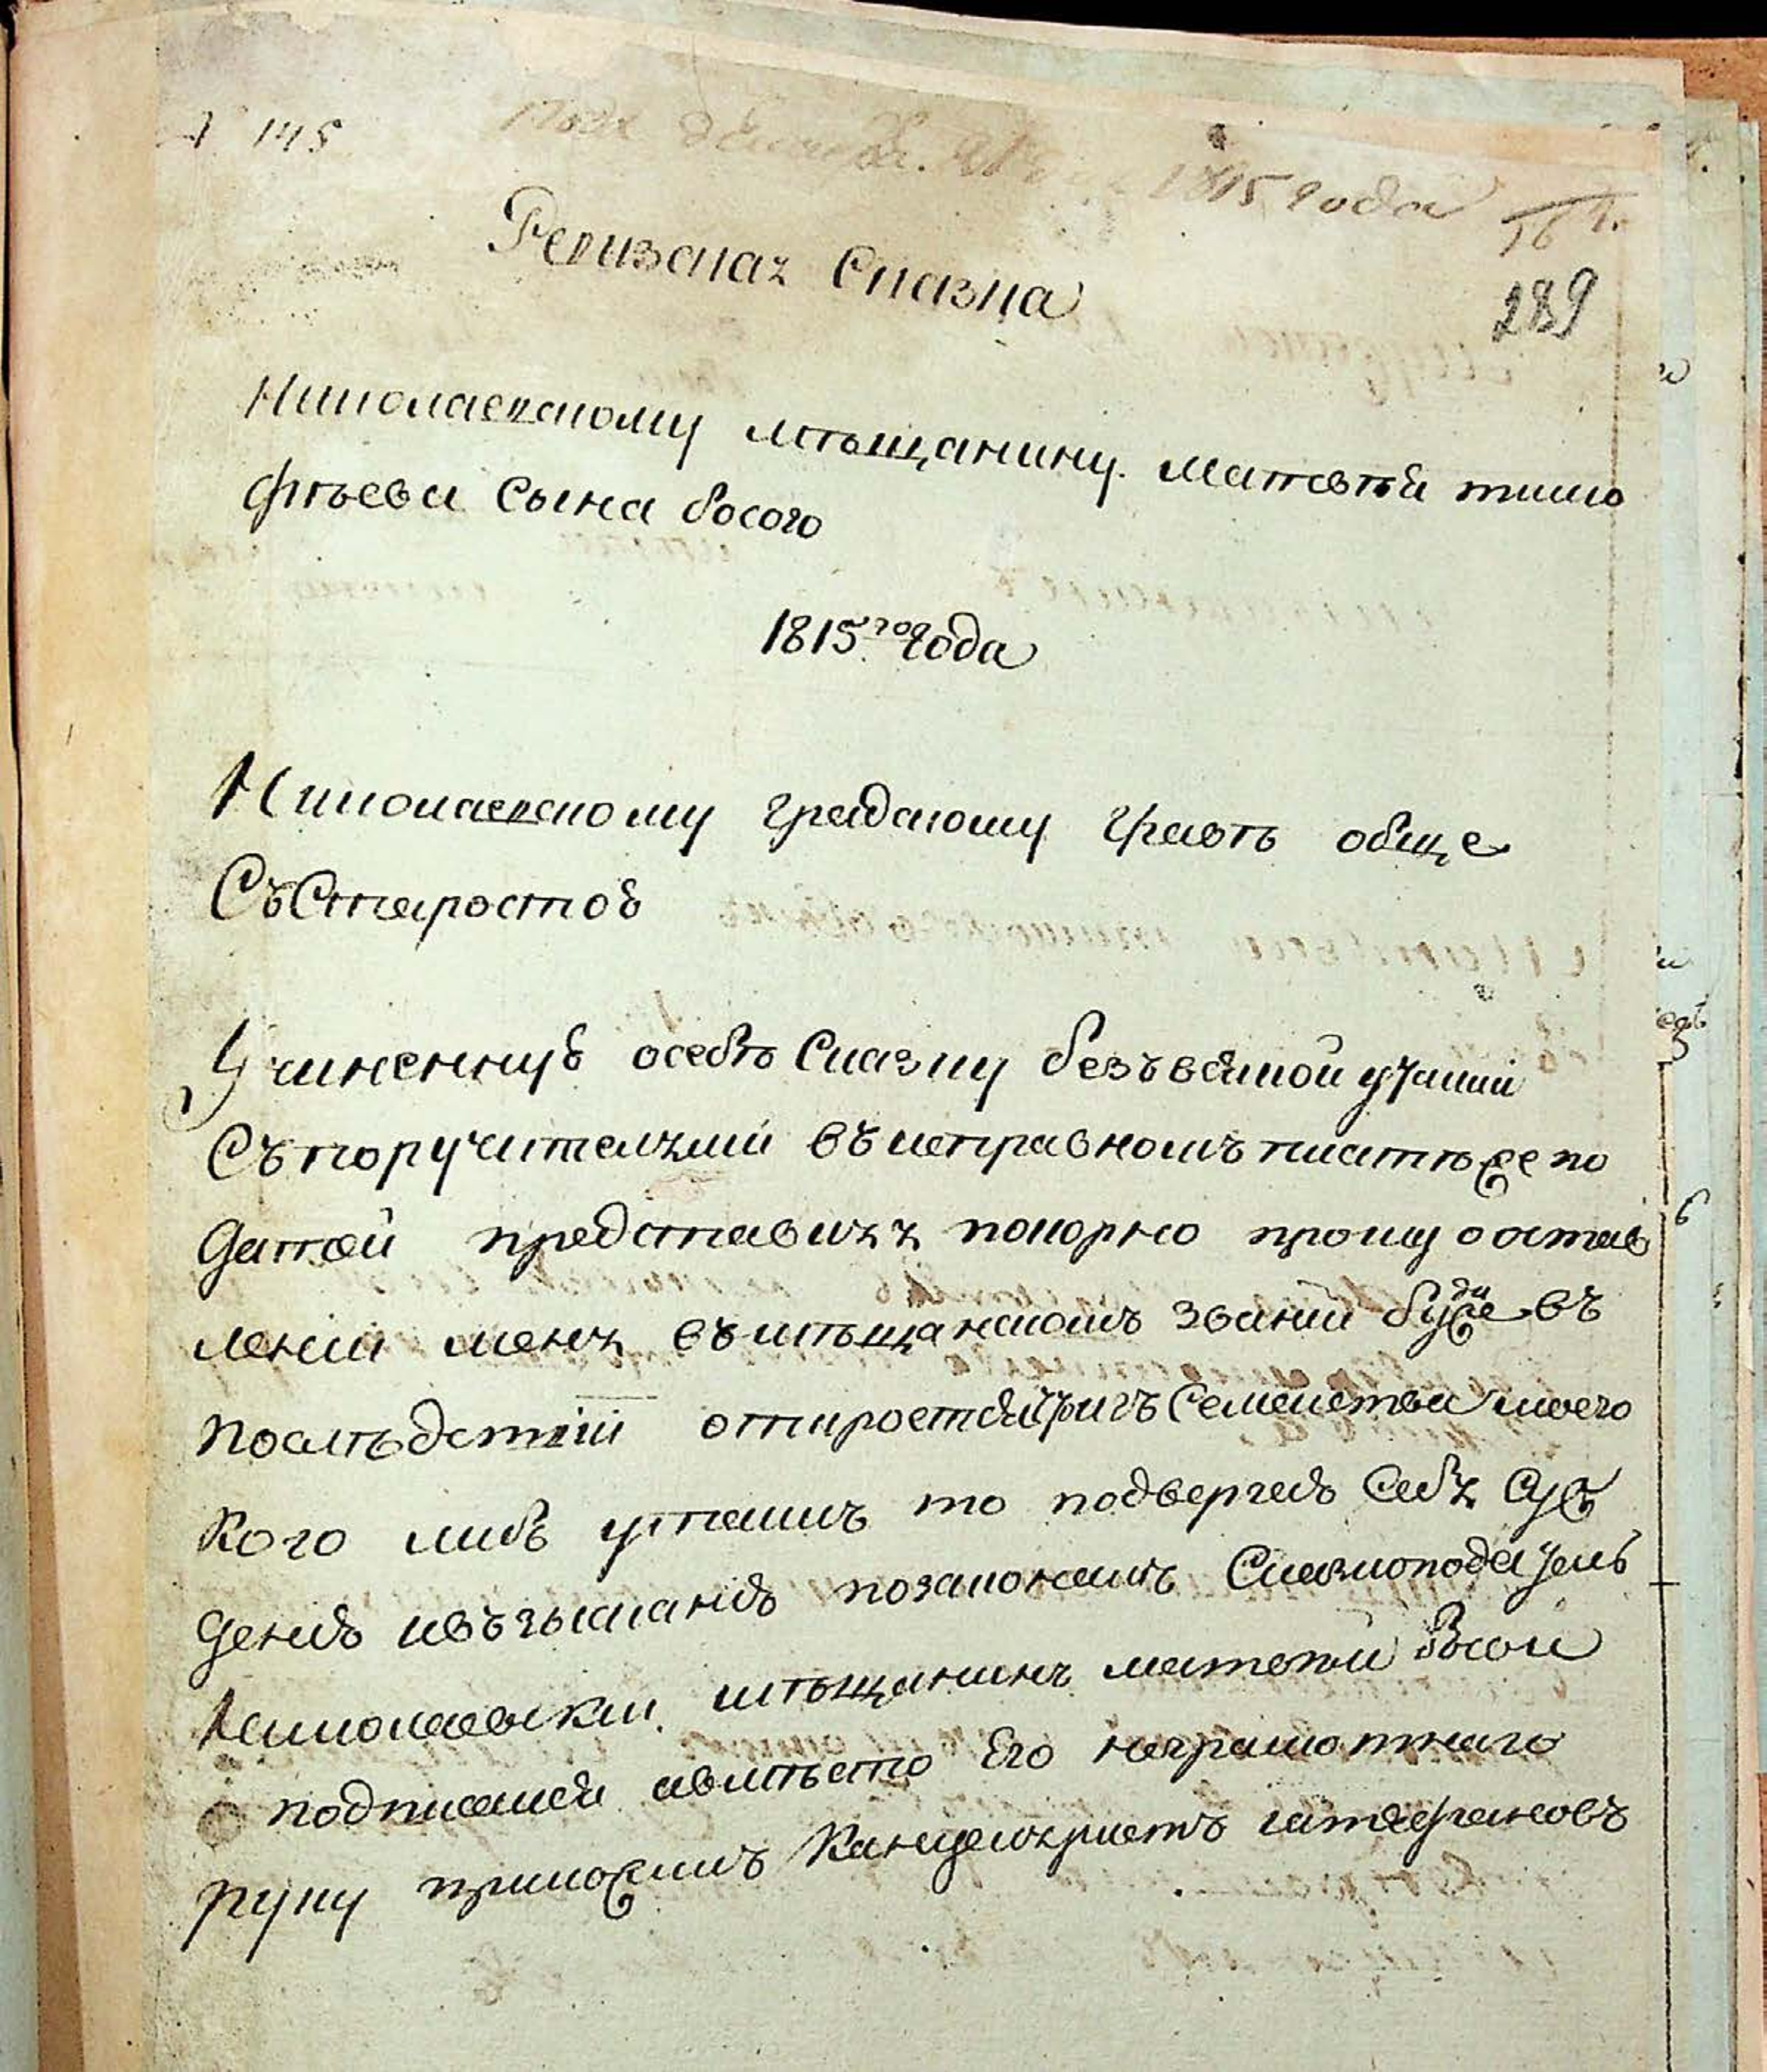 № 145
1815 года
289
Ревизская Сказка
Николаевскому мѣщанину матвѣй тимо
фѣева Сына босого
1815го года
Николаевскому градскому главѣ обще
Съ Старостою
Учиненную о себѣ Сказку безъ всякой утайки
Съ поручителями въ исправномъ платѣже по
датей представляя покорно прошу о остав
лении меня въ мѣщанскомъ звании буде въ
послѣдствии откроется что изъ Семейства моего
кого либо утаилъ то подвергаю Себя Суж
дению и взысканию по законамъ Сказкоподатель
Николаевский мѣщанинъ матвей босой
подписался а вмѣсто Его неграмотнаго
руку приложилъ Канцеляристъ